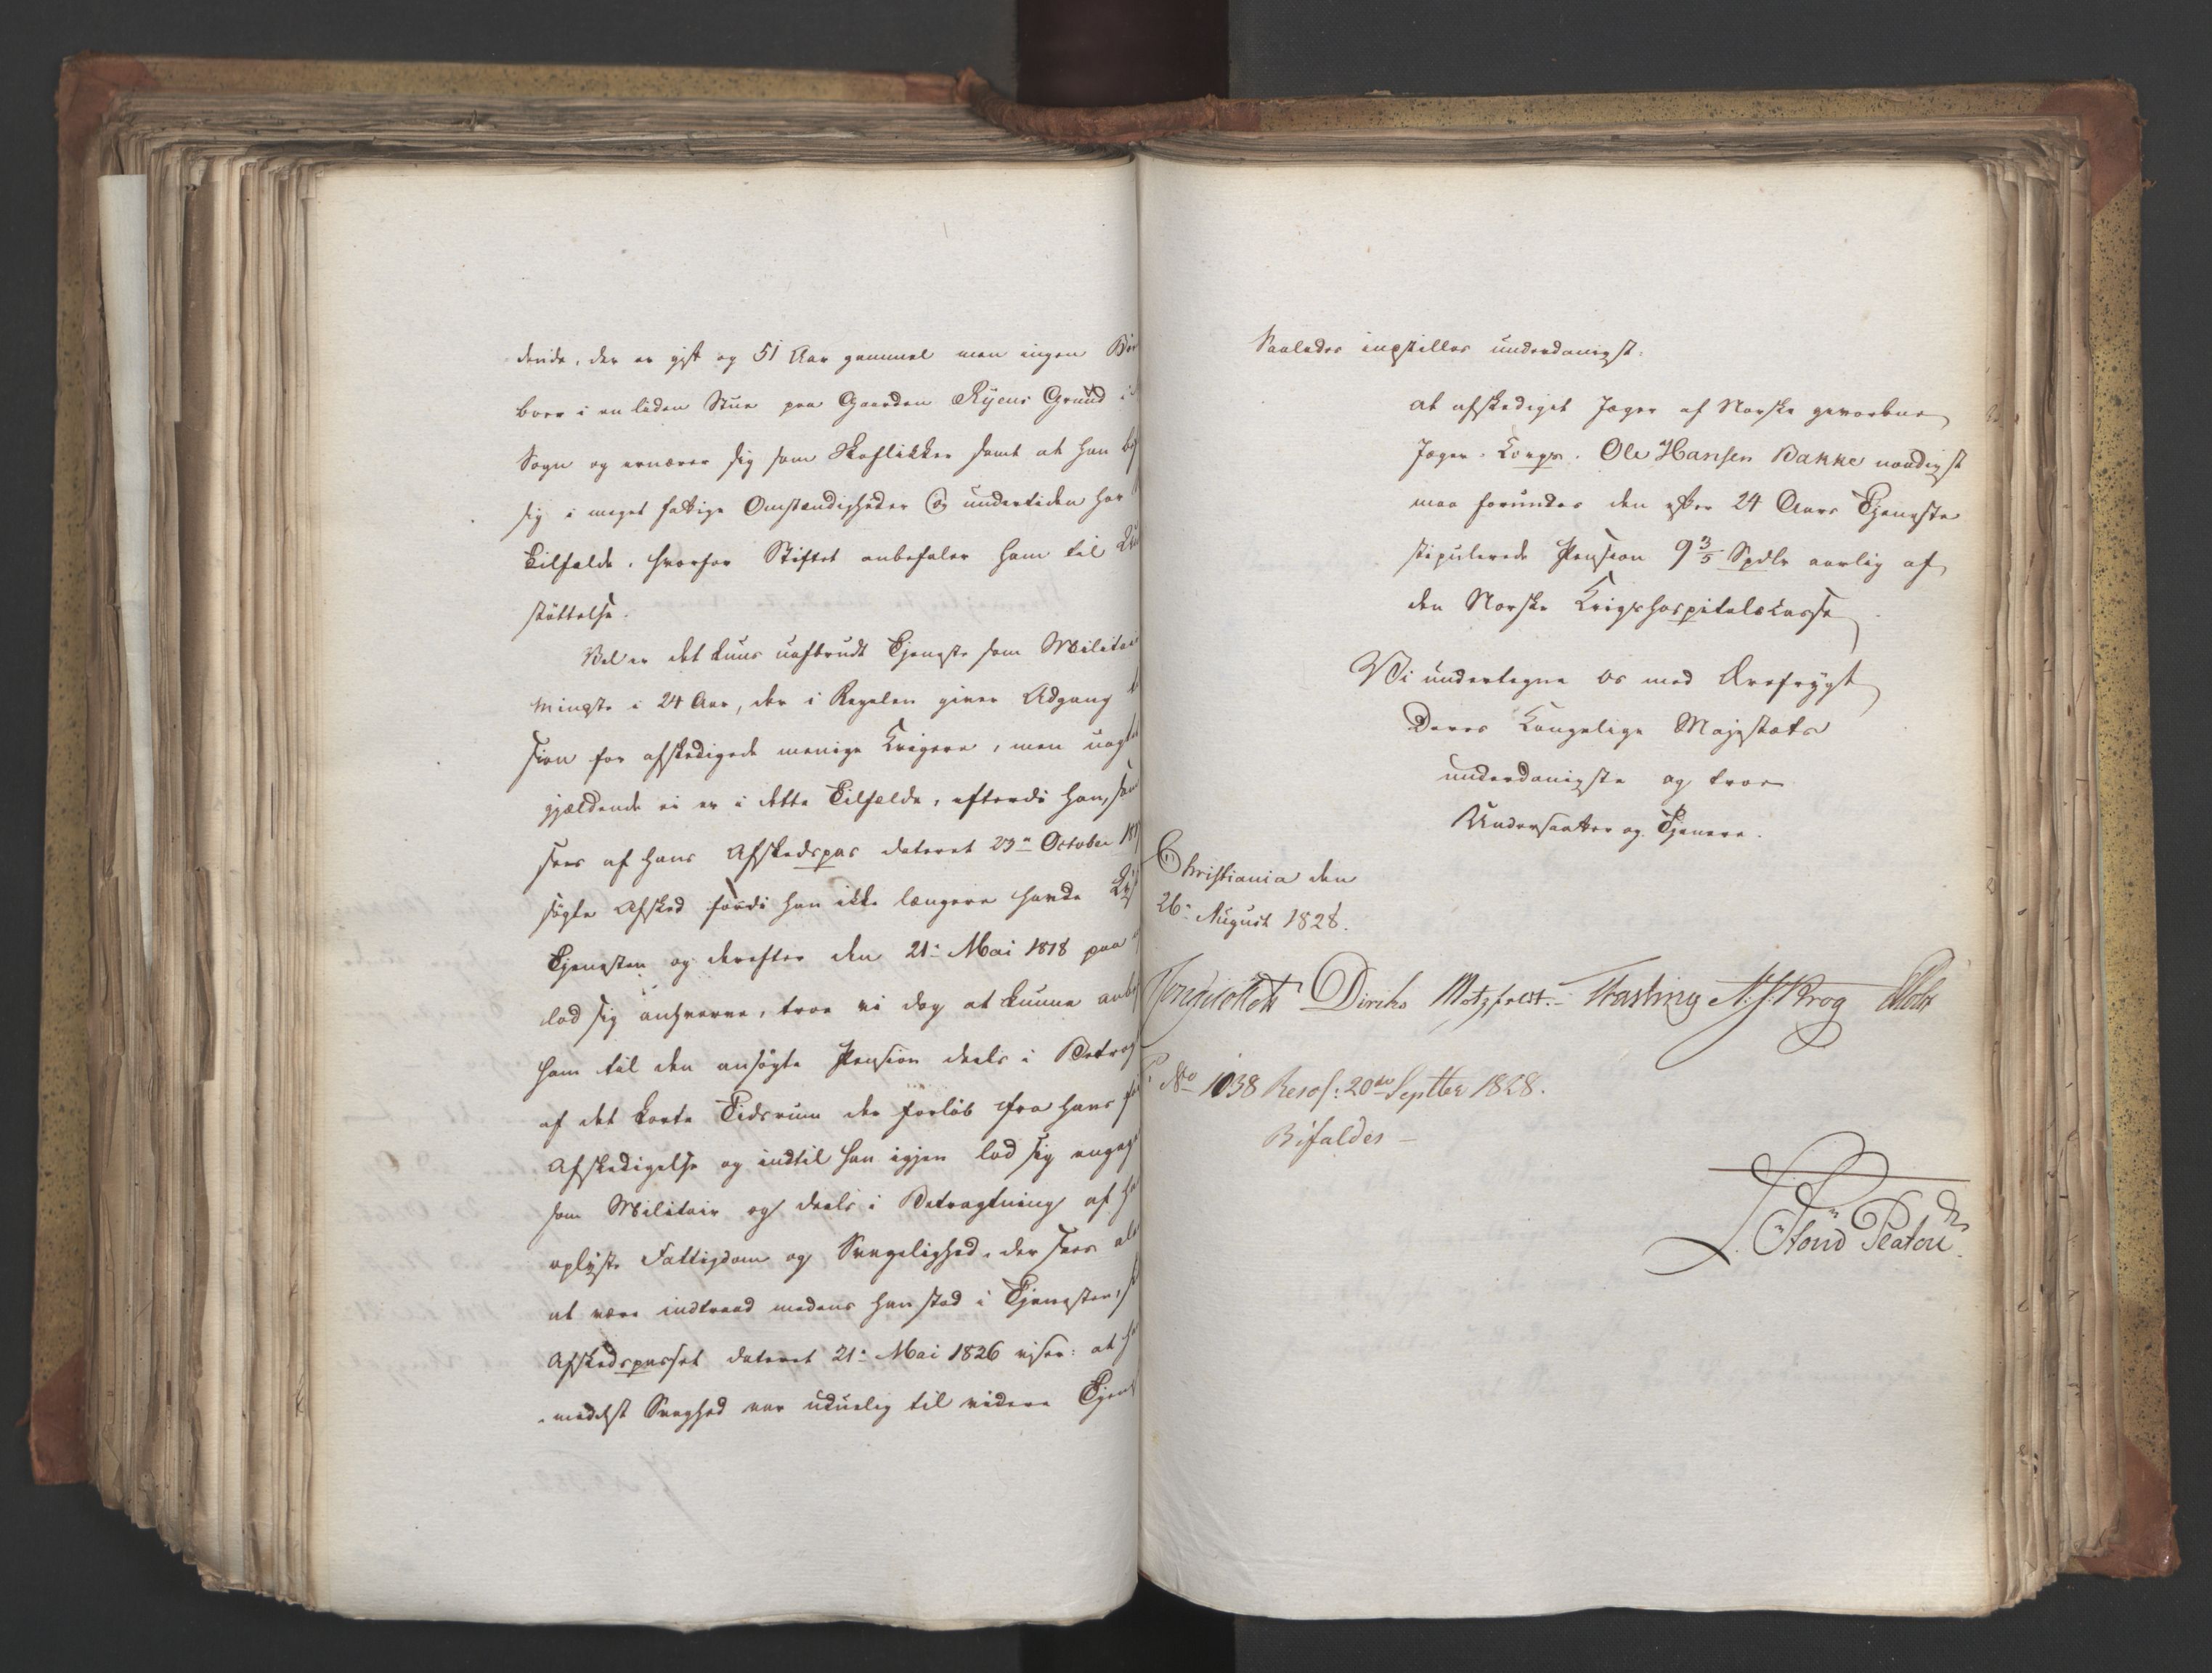 dende, der er gift og 51 Aar gammel men ingen Bør
boer i en liden Stue paa Gaarden Ryens Grund i
Sogn og ernærer sig som Skoflikker samt at han bef
sig i meget fattige Omstændigheder og undertiden har
Tilfælde, hvorfor Stiftet anbefaler ham til
støttelse.
Vel er det kuns uafbrudt Tjeneste som Militair
mingste i 24 Aar, der i Regelen giver Adgang
sion for afskedigede menige Krigere, men uagtet
gjældende ei er i dette Tilfælde, efterdi han, som
sees af hans Afskedspas dateret 23de October 181
søgte Afsked fordi han ikke længere havde Lyst
Tjenesten og derefter den 21de Mai 1818 paa
lod sig anhverve, troe vi dog at kunne anbef
ham til den ansøgte Pension deels i Betrag
af det korte Tidsrum der forløb fra hans
Afskedigelse og indtil han igjen lod sig engage
som Militair og deels i Betragtning af ha
oplyste Fattigdom og Svagelighed, der sees
at være indtraad medens han stod i Tjenesten,
Afskedspasset dateret 21de Mai 1826 viser: at ha
"medelst Svaghed var uduelig til videre Tjene
Saaledes indstilles underdanigst:
at afskediget Jæger af Norske gevorbne
Jæger-Corps. Ole Hansen Bakke naadigst
maa forundes den efter 24 Aars Tjeneste
stipulerede Pension 9 3/5 Spdlr aarlig af
den Norske Krigshospitalskasse
Vi undertegne os med Ærefrygt
Deres Kongelige Majestæts
underdanigste og troe
Undersaatter og Tjenere.
Christiania den
26de August 1828.
Jonas Collett Diriks Motzfeldt. Fasting N. J. Krog Holst
No 1038 Resol: 20de Septber 1828.
Bifaldes